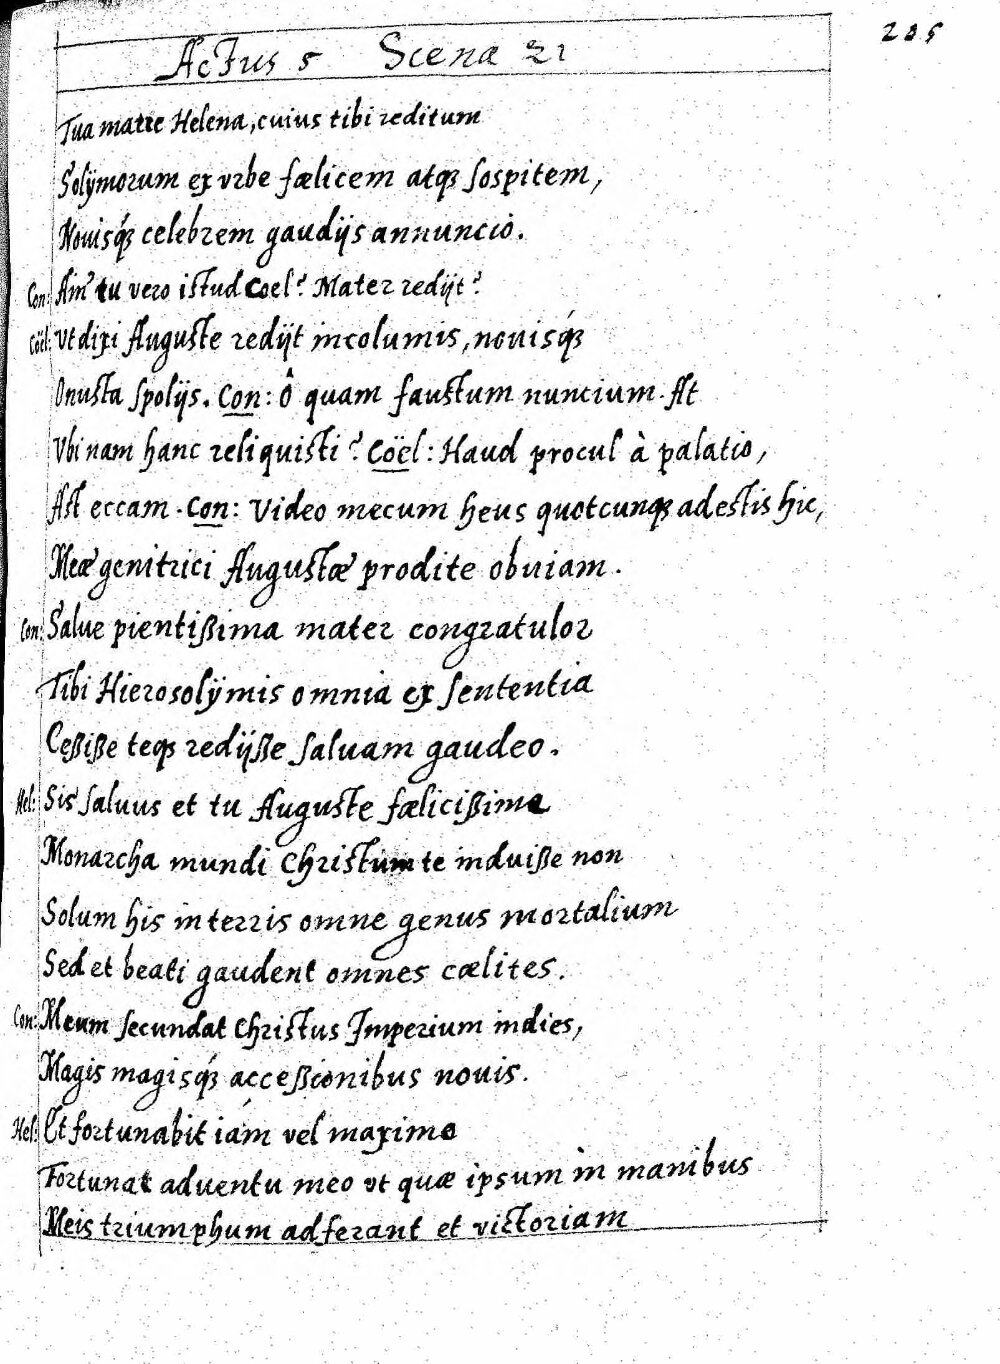 205
Actus 5 Scena 21
Tua matre Helena, cuius tibi reditum
Solÿmorum ex vrbe fælicem atqꝫ sospitem,
Nouisqꝫ́ celebrem gaudijs annuncio.
Con: Ain' tu vero istud Coel? Mater redijt?
Cöel: Vt dixi Auguste redijt incolumis, nouisqꝫ́
Onusta spolijs. Con: Ô quam faustum nuncium. At
Vbi nam hanc reliquisti? Cöel: Haud procul à palatio,
Ast eccam. Con: Video mecum heus quotcunqꝫ adestis hic,
Meæ genitrici Augustæ prodite obuiam.
Con: Salue pientißima mater congratulor
Tibi Hierosolÿmis omnia ex sententia
Ceßiße teqꝫ redijße saluam gaudeo.
Hel: Sis saluus et tu Auguste fælicißime
Monarcha mundi Christum te induiße non
Solum his in terris omne genus mortalium
Sed et beati gaudent omnes cælites.
Con: Meum secundat Christus Imperium indies,
Magis magisqꝫ́ acceßionibus nouis.
Hel: Et fortunabit iám vel maxime
Fortunat aduentu meo vt quæ ipsum in manibus
Meis triumphum adferant et victoriam